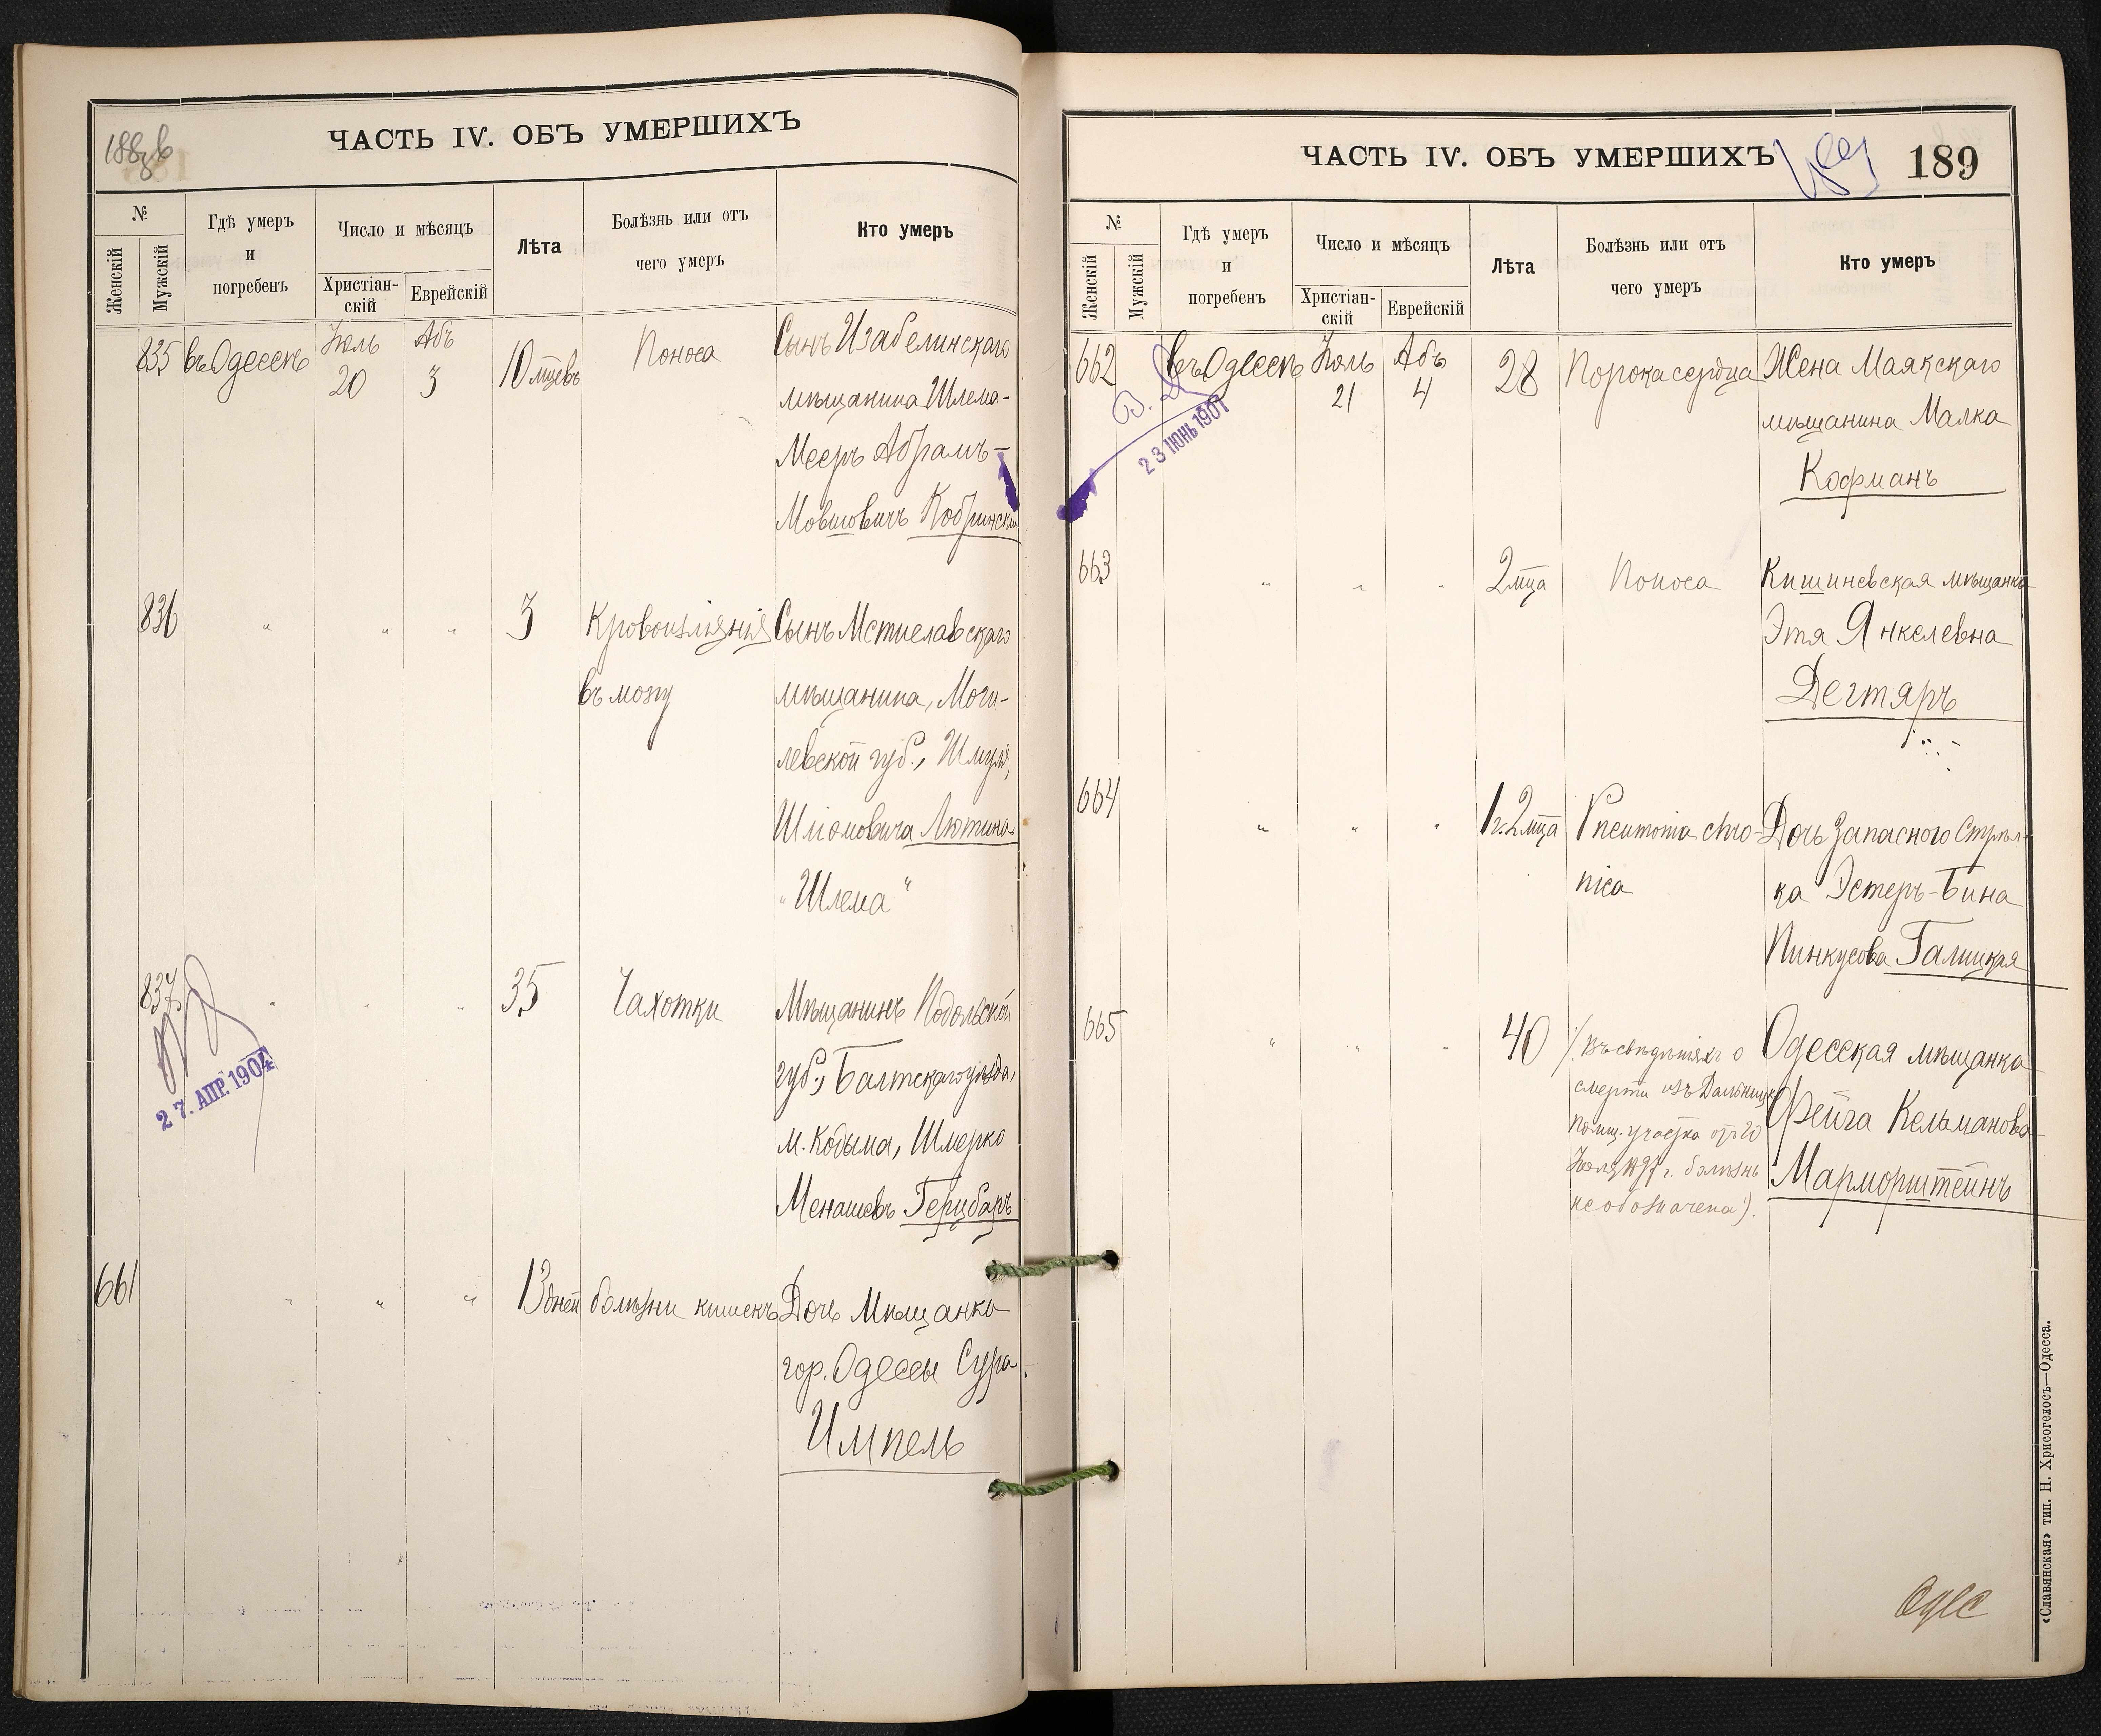 188 об
ЧАСТЬ IV. ОБЪ УМЕРШИХЪ
№
Женскій
Мужскій
Гдѣ умеръ
и
погребенъ
Число и мѣсяцъ
Христіан-
скій
Еврейскій
Лѣта
Болѣзнь или отъ
чего умеръ
Кто умеръ
835 въ Одессѣ Іюль 20 Абъ 3 10 мцевъ Поноса Сынъ Изабелинскаго
мѣщанина Шлема-
Мееръ Абрамъ-
Мовшовичъ Кобринскій
836 " " " 3 Кровоизліянія Сынъ Мстиславскаго
въ мозгу мѣщанина, Моги-
левской губ., Шмуля
Шліомовича Лютина
"Шлема"
837 " " " 35 Чахотки Мѣщанинъ Подольской
губ., Балтскаго уѣзда,
м. Кодыма, Шмерко
Менашевъ Герцбаръ
27. АПР. 1904
661 " " " 13 дней болѣзни кишекъ Дочь Мѣщанка
гор. Одессы Сура
Импель
ЧАСТЬ IV. ОБЪ УМЕРШИХЪ
189
№
Женскій
Мужскій
Гдѣ умеръ
и
погребенъ
Число и мѣсяцъ
Христіан-
скій
Еврейскій
Лѣта
Болѣзнь или отъ
чего умеръ
Кто умеръ
662 въ Одессѣ Іюль 21 Абъ 4 28 Порока сердца Жена Маякскаго
мѣщанина Малка
Кофманъ
23 ІЮНЬ 1907
663 " " " 2 мца Поноса Кишиневская мѣщанка
Этя Янкелевна
Дегтяръ
664 " " " 1 г. 2 мца Pneumonia chro- Дочь Запасного Стрѣл-
nica ка Эстеръ-Бина
Пинкусова Галицкая
665 " " " 40 (Въ свѣдѣніяхъ о Одесская мѣщанка
смерти изъ Дальницк. Фейга Кельманова
полиц. участка отъ 20 Марморштейнъ
Іюля 1897 г. болѣзнь
не обозначена).
Одес
«Славянская» тип. Н. Хрисогелосъ—Одесса.